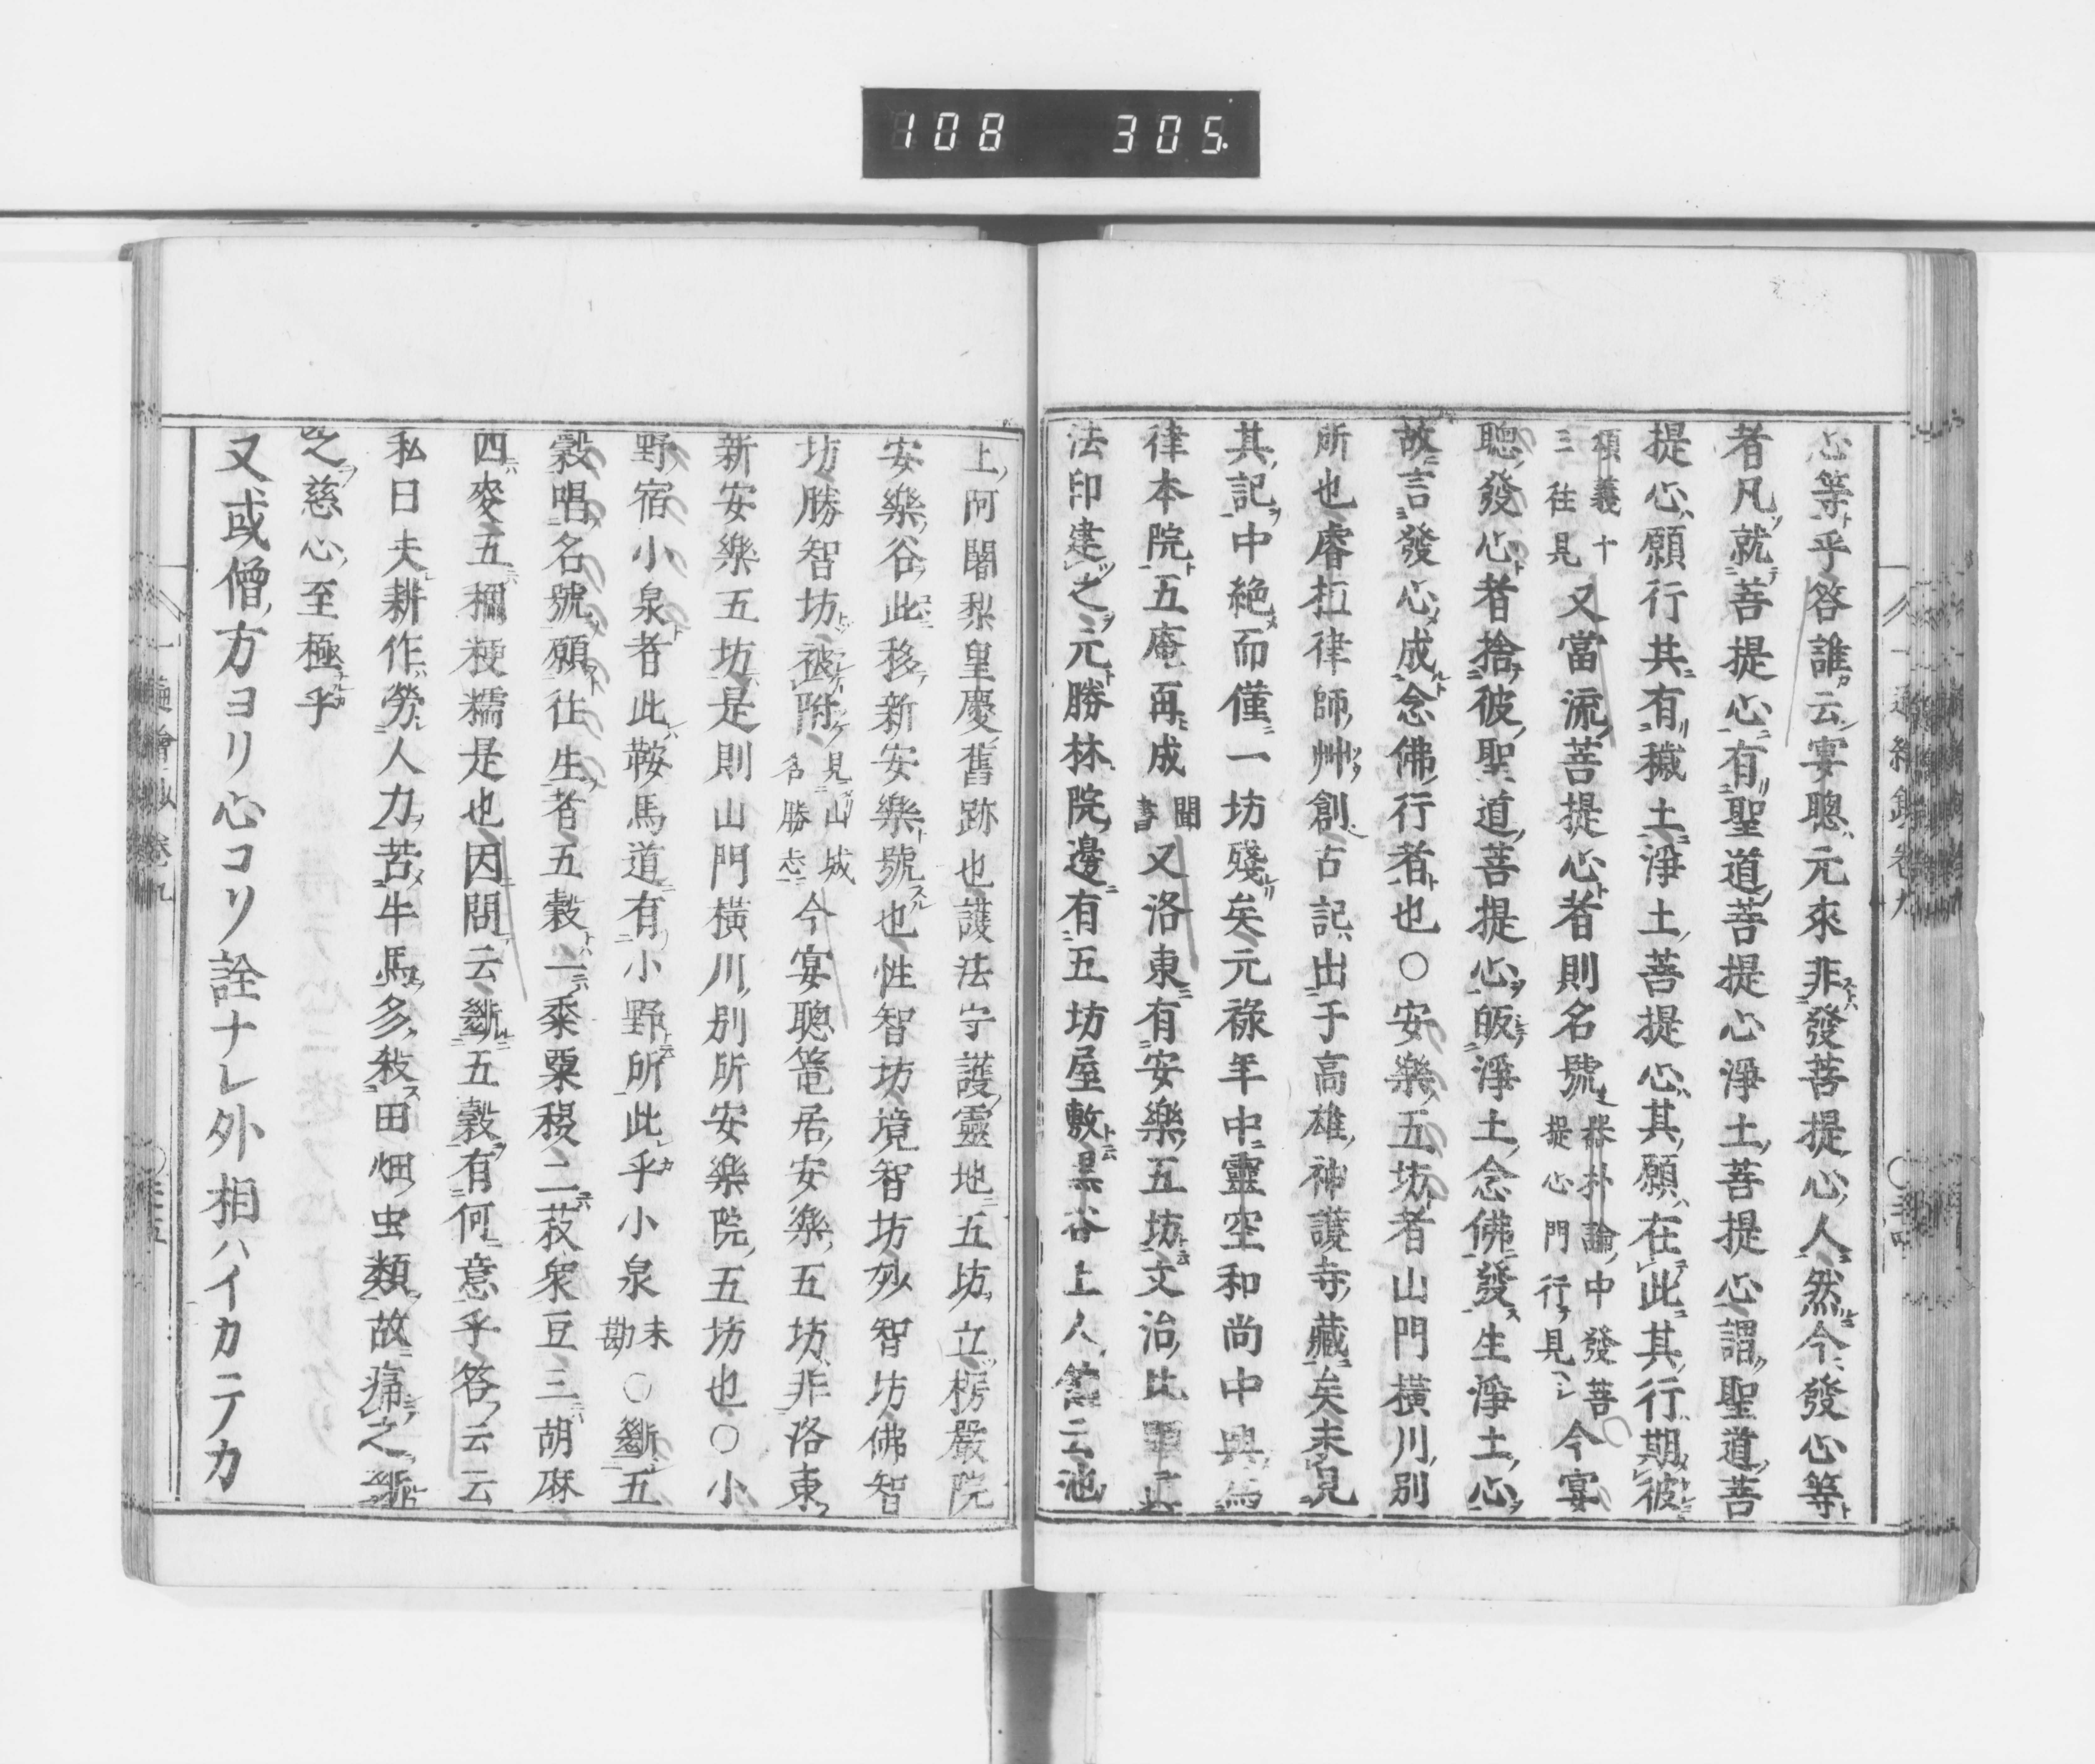 108 305
心等乎答誰云宴聰元來非發菩提心人然今發心等
者凡就菩提心有聖道菩提心淨土菩提心謂聖道菩
提心願行共有穢土淨土菩提心其願在此其行期彼
頌義十三往見又當流菩提心者則名號器朴論中發菩提心門行見今宴
聰發心者捨彼聖道菩提心皈淨土念佛發生淨土心
故言發心成念佛行者也○安樂五坊者山門橫川別
所也睿㧈律師艸創古記出于高雄神護寺藏矣未見
其記中絶而僅一坊殘矣元祿年中靈空和尚中興爲
律本院五庵再成聞書又洛東有安樂五坊文治比
法印建之元勝林院邊有五坊屋敷黒谷上人云池
上阿闍梨皇慶舊跡也護法守護靈地五坊立楞嚴院
安樂谷此移新安樂號也性智坊境智坊妙智坊佛智
坊勝智坊被附見山城名勝志今宴聰篭居安樂五坊非洛東
新安樂五坊是則山門橫川別所安樂院五坊也○小
野宿小泉者此鞍馬道有小野所此乎小泉未勘○斷五
穀唱名號願往生者五穀一黍粟稷二菽衆豆三胡麻
四麥五稱粳糯是也因問云斷五穀有何意乎答云云
私曰夫耕作勞人力苦牛馬多殺田畑虫類故痛之斷
之慈心至極乎
又或僧方ヨリ心コソ詮ナレ外相ハイカテカ